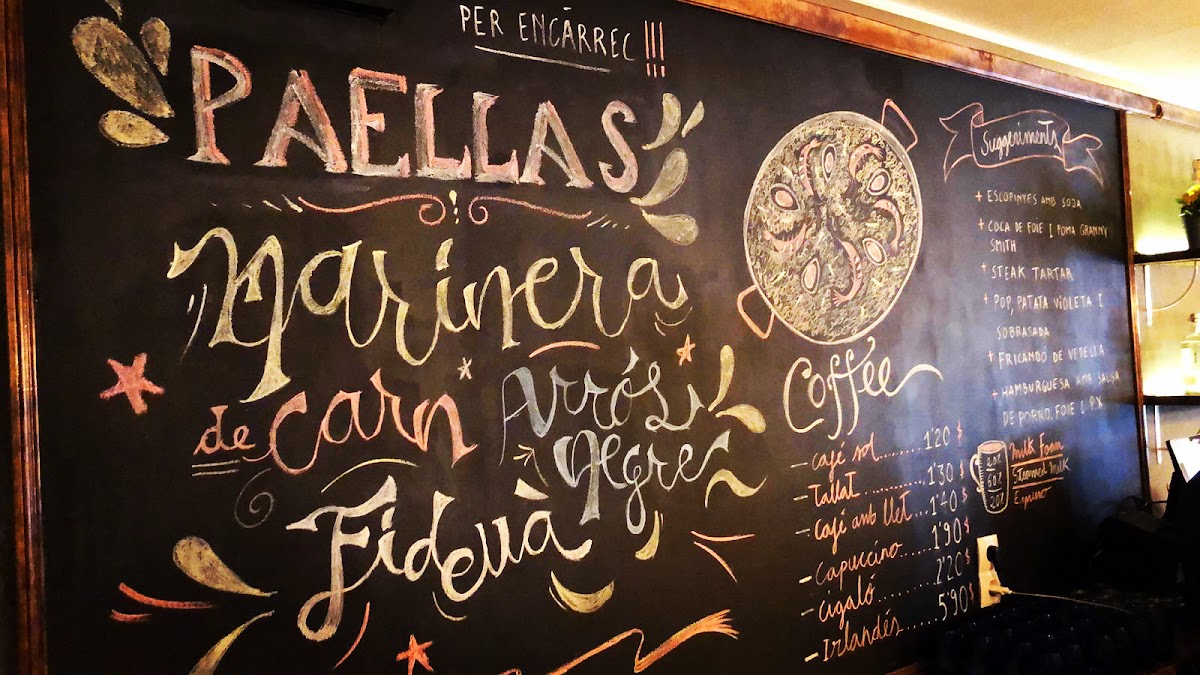 PER ENCÀRREC !!!
PAELLAS
Marinera
de carn
Arròs
Negre
Fideuà
Coffee
- Café sol........1'20 $
- Tallat............1'30 $
- Café amb llet...1'40 $
- Capuccino......1'90 $
- Cigaló...........2'20 $
- Irlandés........5'90 $
20%
60%
20%
Milk Foam
Steamed Milk
Espresso
Suggeriments
+ ESCOPINYES AMB SOJA
+ COCA DE FOIE I POMA GRANNY
SMITH
+ STEAK TARTAR
+ POP, PATATA VIOLETA I
SOBRASADA
+ FRICANDÓ DE VEDELLA
+ HAMBURGUESA AMB SALSA
DE PORRO, FOIE I P.X